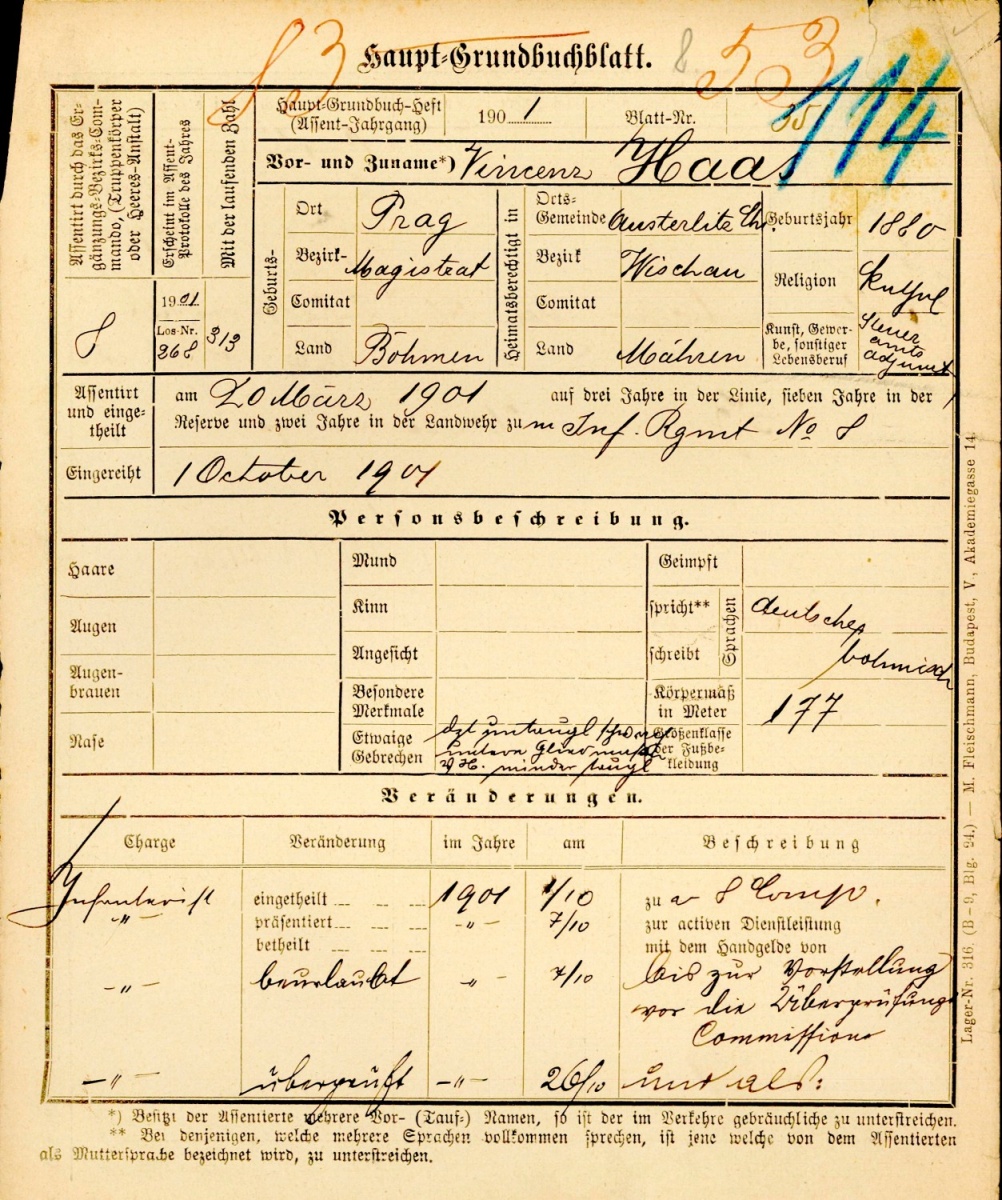 83
8
53
114
Haupt-Grundbuchblatt.
Assentirt durch das Er-
gänzungs-Bezirks-Com-
mando, (Truppenkörper
oder Heeres-Anstalt)
8
Erscheint im Assent-
Protokolle des Jahres
1901
Los-Nr.
268
Mit der laufenden Zahl
313
Haupt-Grundbuch-Heft
(Assent-Jahrgang)
1901
Blatt-Nr.
Vor- und Zuname*) Vincenz Haas
Geburts-
Ort Prag
Bezirk- Magistrat
Comitat
Land Böhmen
Heimatsberechtigt in
Orts-
Gemeinde Austerlitz
Bezirk Wischau
Comitat
Land Mähren
Geburtsjahr 1880
Religion kathol
Kunst, Gewer-
be, sonstiger
Lebensberuf
Steuer
amts
adjunct
Assentirt
und einge-
theilt
am 20 März 1901 auf drei Jahre in der Linie, sieben Jahre in der
Reserve und zwei Jahre in der Landwehr zum Inf. Rgmt No 8
Eingereiht 1 October 1901
Personsbeschreibung.
Haare
Augen
Augen-
brauen
Nase
Mund
Kinn
Angesicht
Besondere
Merkmale
Etwaige
Gebrechen
minder taugl
Geimpft
spricht**
schreibt
Sprachen
deutsch
böhmisch
Körpermaß
in Meter
177
Größenklasse
der Fußbe-
kleidung
Veränderungen.
Charge Veränderung im Jahre am Beschreibung
Infanterist eingetheilt 1901 1/10 zu 8 Comp.
-"- präsentiert -"- 7/10 zur activen Dienstleistung
betheilt mit dem Handgelde von
-"- beurlaubt " 7/10 bis zur Vorstellung
vor die Überprüfungs
Commission
-"- überprüft -"- 26/10 und als:
*) Besitzt der Assentierte mehrere Vor- (Tauf-) Namen, so ist der im Verkehre gebräuchliche zu unterstreichen.
** Bei denjenigen, welche mehrere Sprachen vollkommen sprechen, ist jene welche von dem Assentierten
als Muttersprache bezeichnet wird, zu unterstreichen.
Lager-Nr. 316. (B-9, Blg. 94.) — M. Fleischmann, Budapest, V., Akademiegasse 14.